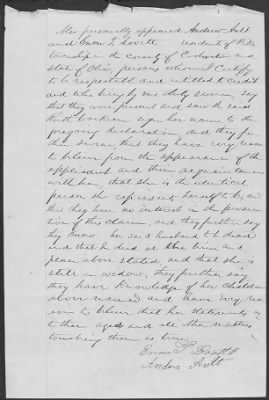 Also personally appeared Andrew Ault
and Enos L Barrett residents of Pike
township in the County of Coshocton and
state of Ohio, persons whom I certify
to be respectable and entitled to credit
and who being by me duly sworn, say
that they were present and saw the said
Ruth Cochran sign her name to the
foregoing declaration, and they fur
ther swear, that they have every reason
to believe from the appearance of the
applicant and their acquaintance
with her, that she is the identical
person she represents herself to be, and
that they have no interest in the prosecu
tion of this claim and they further say
they know her said husband to be dead
and that he died at the time and
place above stated, and that she is
still a widow, they further say
they have knowledge of her children
above named and have every rea
son to believe that her statements as
to their ages and all the matters
touching them is true
Enos
Andrew Ault